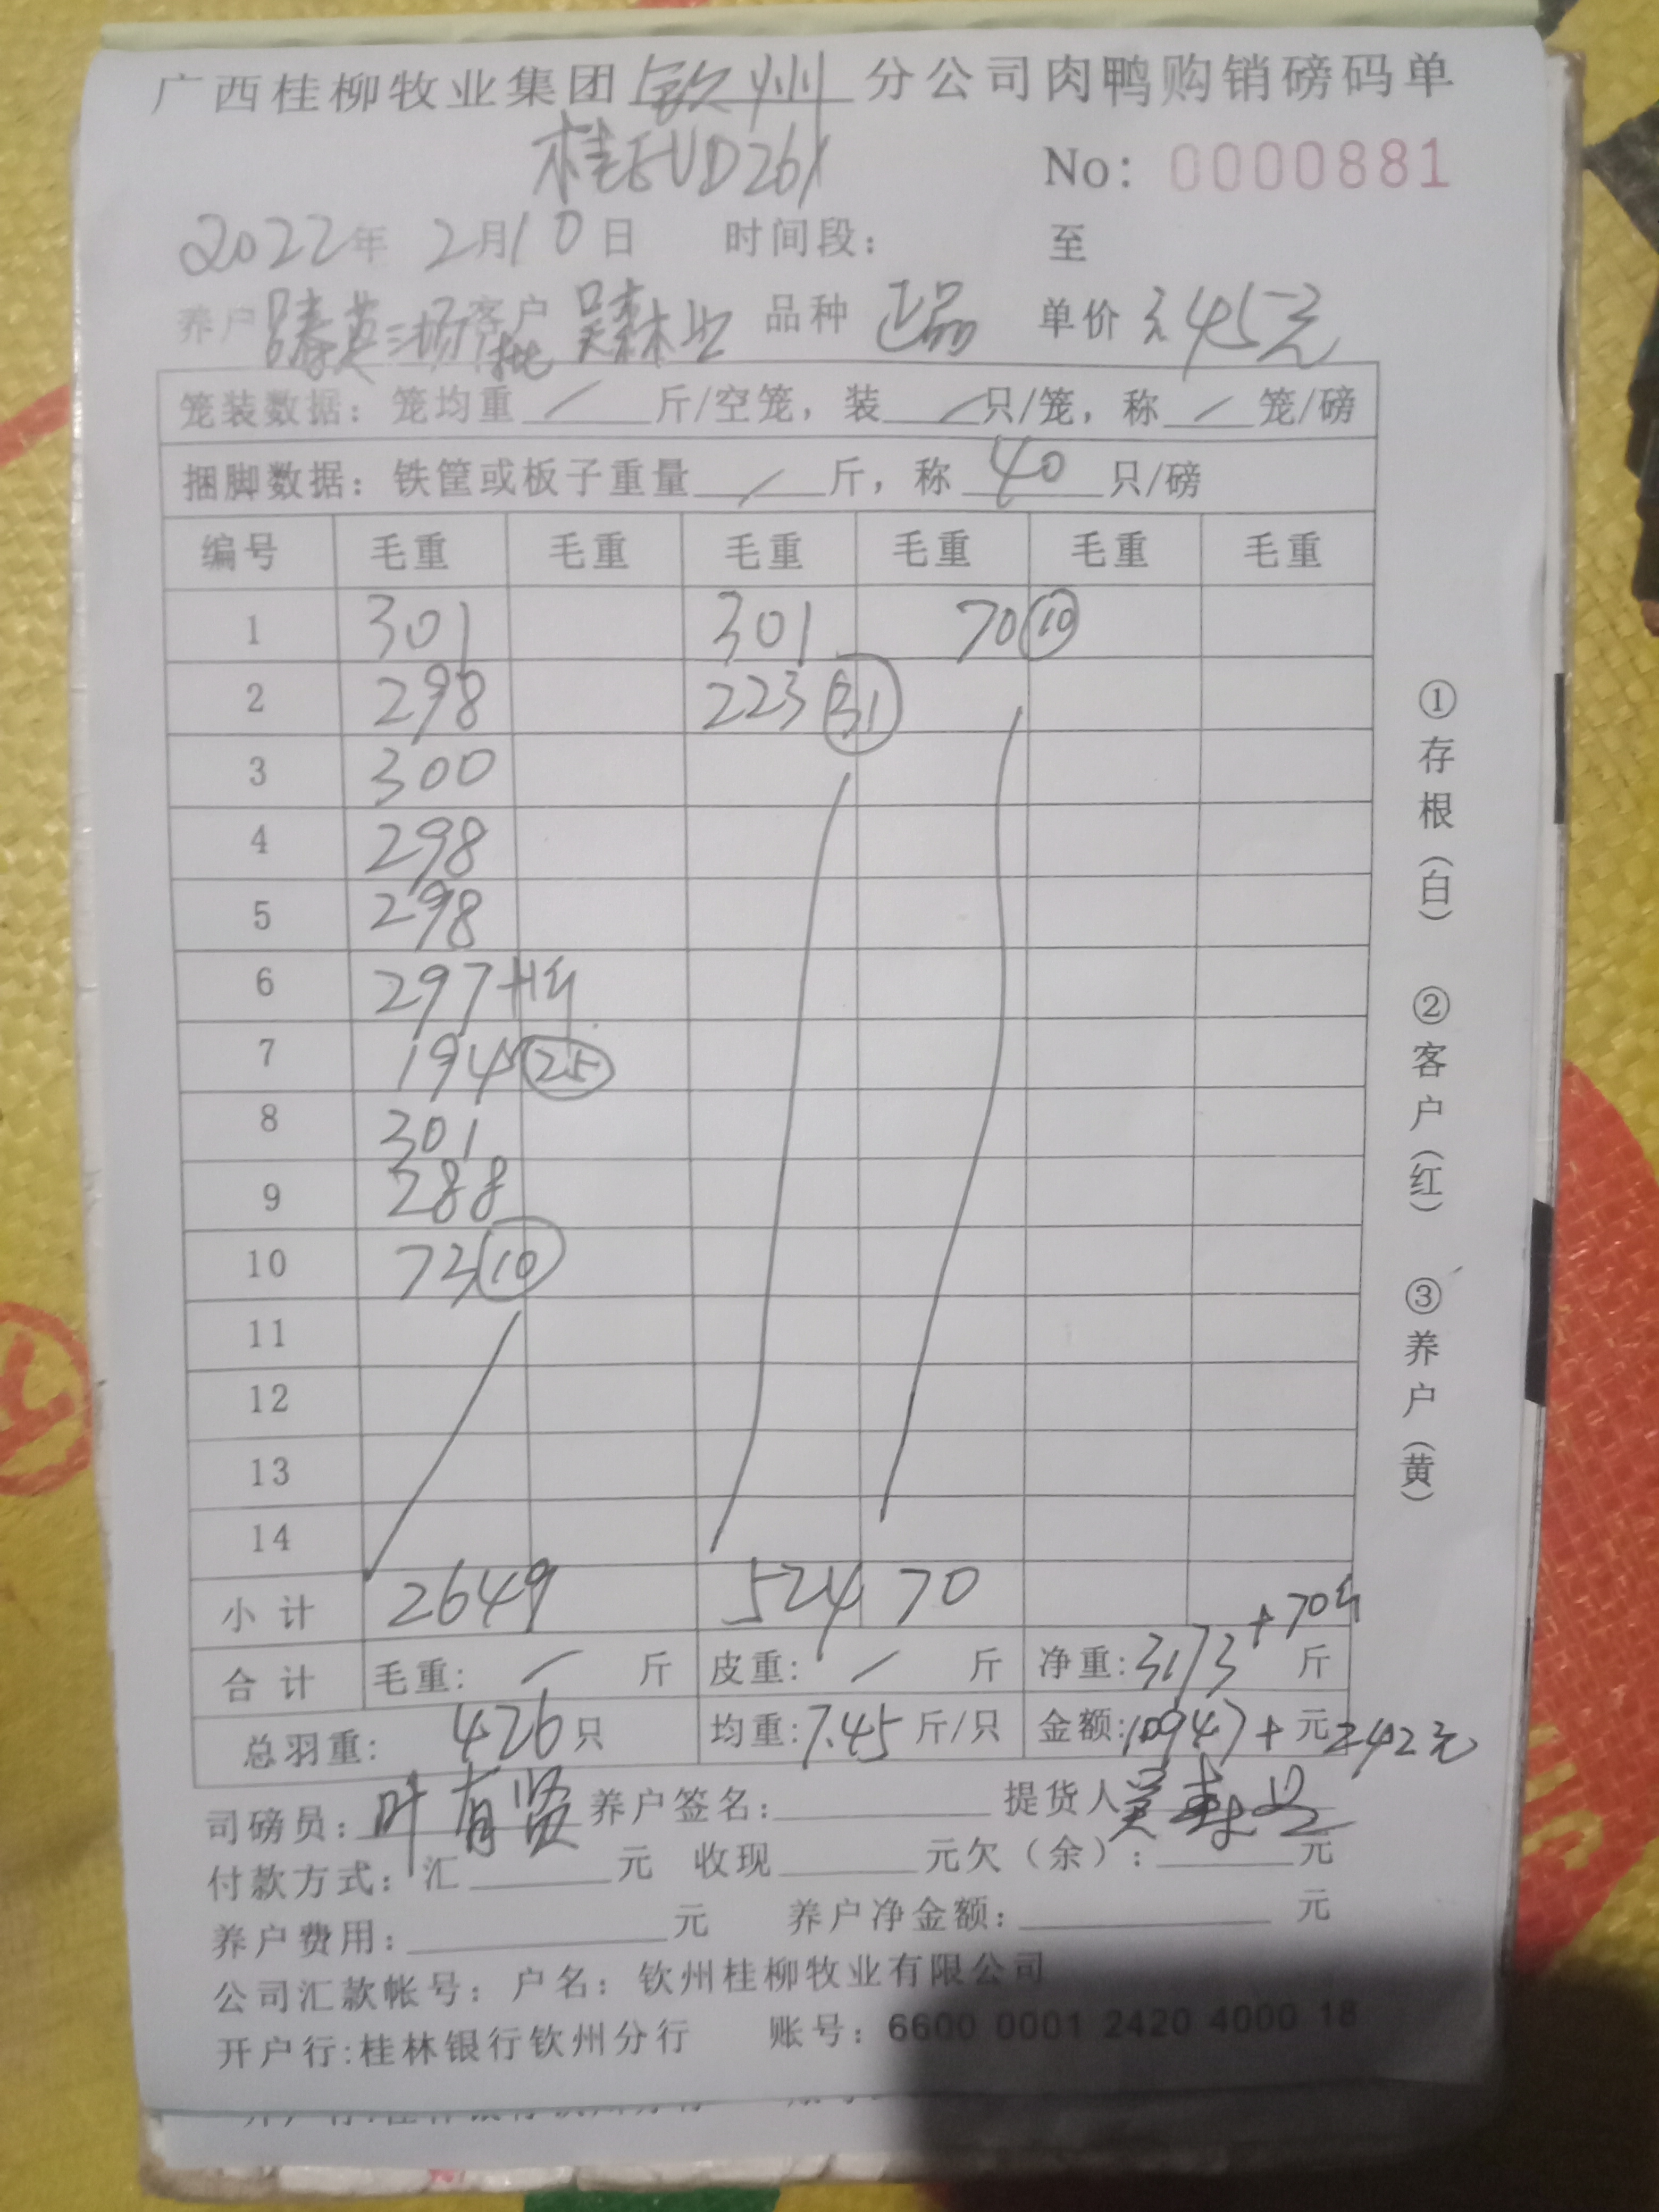 广西桂柳牧业集团钦州分公司肉鸭购销磅码单
桂EUD261
No: 0000881
2022年 2月10日 时间段: 至
养户 客户 品种 正品 单价 3.45元
笼装数据: 笼均重 / 斤/空笼, 装 / 只/笼, 称 / 笼/磅
捆脚数据: 铁筐或板子重量 / 斤, 称 40 只/磅
编号 毛重 毛重 毛重 毛重 毛重 毛重
1 301 301 70 (10)
2 298 223 (31)
3 300
4 298
5 298
6 297+1斤
7 194 (25)
8 301
9 288
10 73 (10)
11
12
13
14
小计 2649 524 70
合计 毛重: / 斤 皮重: / 斤 净重: 3173+70斤 斤
总羽重: 426只 均重: 7.45斤/只 金额: 10947+ 元 242元
司磅员: 叶有贤 养户签名: 提货人
付款方式: 汇 元 收现 元欠(余): 元
养户费用: 元 养户净金额: 元
公司汇款帐号: 户名: 钦州桂柳牧业有限公司
开户行:桂林银行钦州分行 账号: 6600 0001 2420 4000 18
①存根(白) ②客户(红) ③养户(黄)